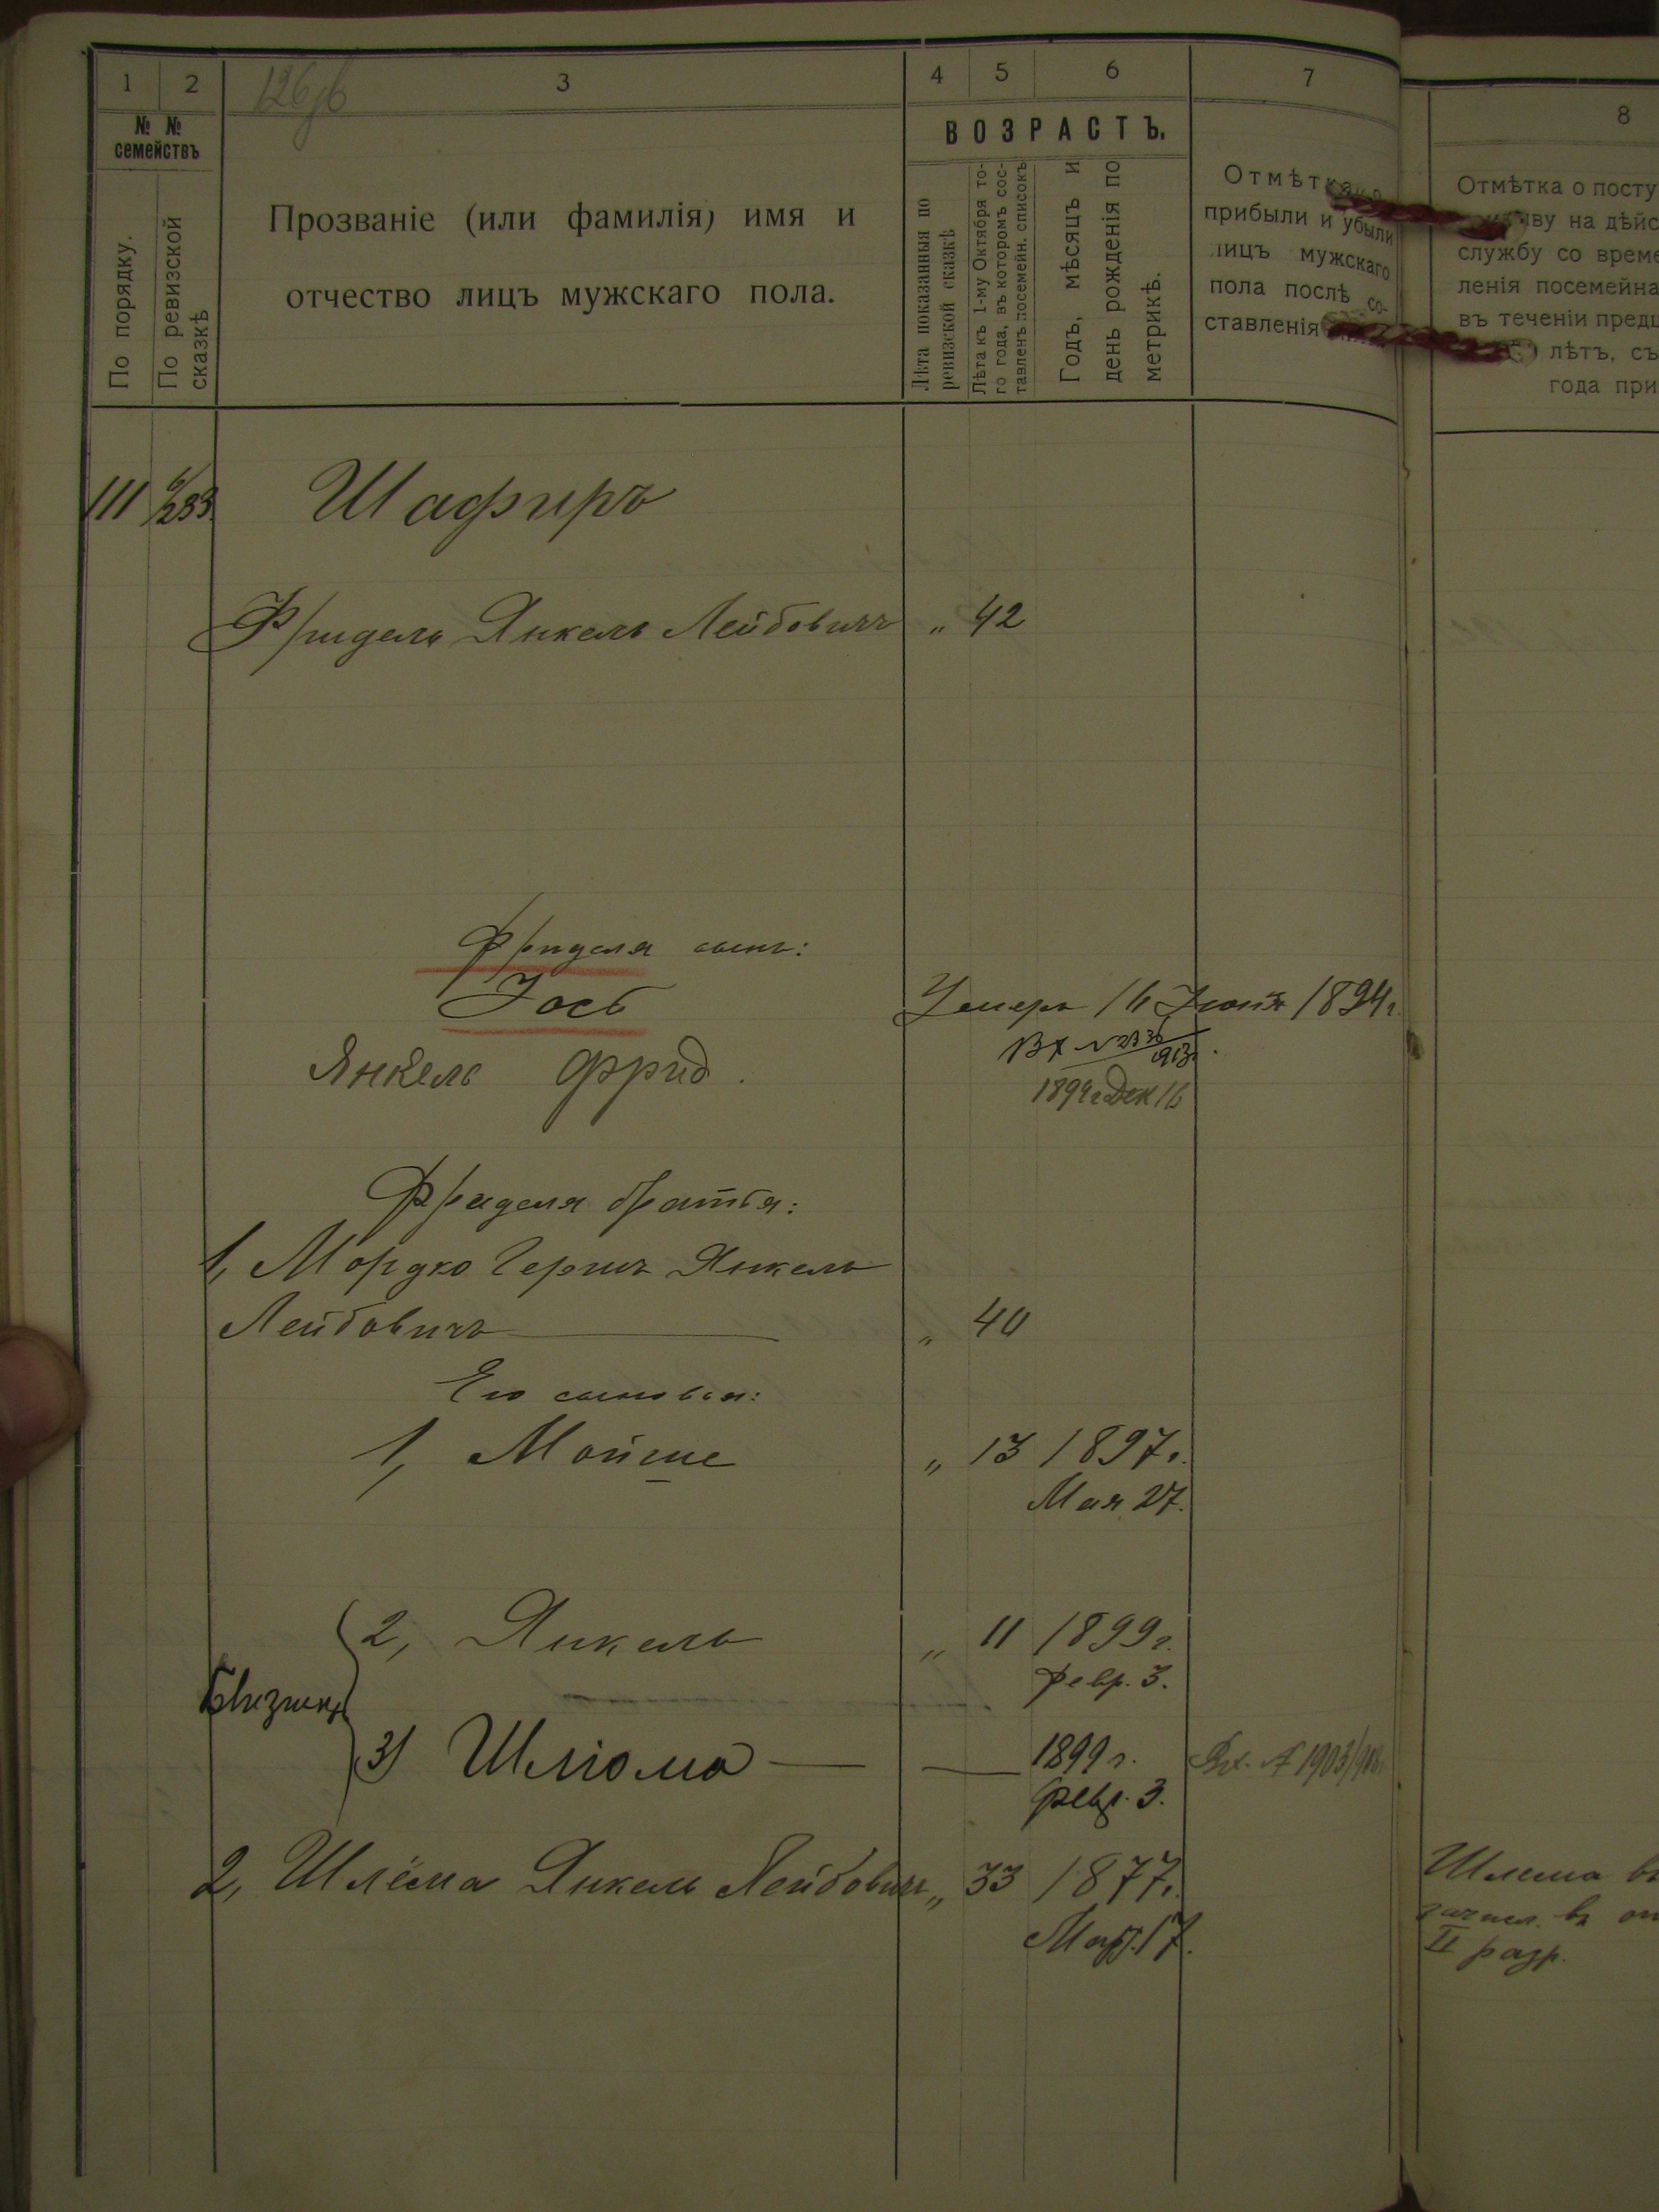 126 об
1 2 3 4 5 6 7
№ № семействъ
По порядку.
По ревизской сказкѣ
Прозваніе (или фамилія) имя и
отчество лицъ мужскаго пола.
ВОЗРАСТЪ.
Лѣта показанныя по
ревизской сказкѣ
Лѣта къ 1-му Октября то-
го года, въ которомъ сос-
тавленъ посемейн. списокъ
Годъ, мѣсяцъ и
день рожденія по
метрикѣ.
Отмѣтка о
прибыли и убыли
лицъ мужскаго
пола послѣ со-
ставленія
8
Отмѣтка о посту
ыву на дѣйс
службу со време
ленія посемейна
въ теченіи предш
лѣтъ, съ
года при
111 233 Шафиръ
Фридель Янкель Лейбовичъ „ 42
Фриделя сынъ:
Іось Умеръ 16 1894 г.
Вх № 2336
913 г.
Янкель Фрид. 1894 г Дек 16
Фриделя братья:
1, Мордко Гершъ Янкель
Лейбовичъ „ 40
Его сыновья:
1, Мойше „ 13 1897 г.
Мая 27.
2, Янкель „ 11 1899 г.
Февр. 3.
Близнец
3) Шліома 1899 г. Вх. № 1903/908
Февр. 3.
2, Шлёма Янкель Лейбовичъ „ 33 1877 г.
Март. 17.
Шлема въ
зачисл. въ оп
II разр.